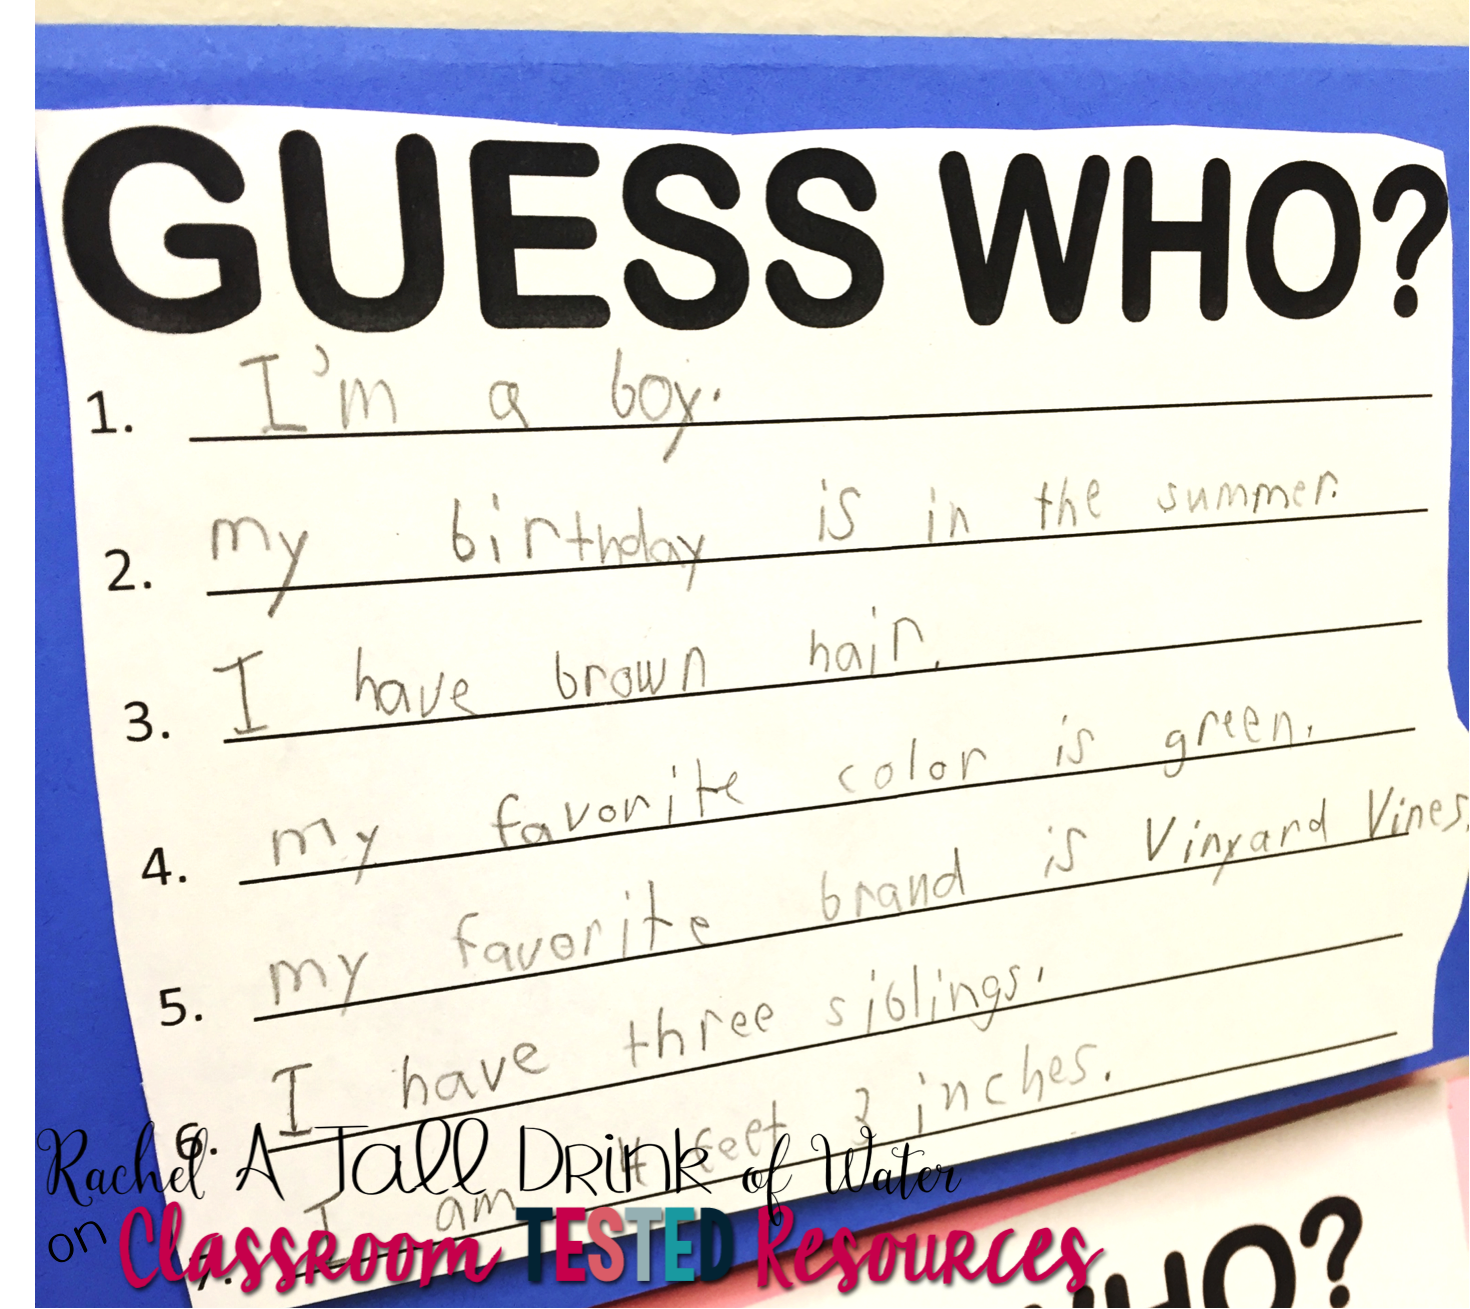 GUESS WHO?
1. I'm a boy.
2. my birthday is in the summer.
3. I have brown hair.
4. my favorite color is green.
5. my favorite brand is Vinyard Vines.
6. I have three siblings.
7. I am 4 feet 3 inches.
Rachel A Tall Drink of Water
on Classroom TESTED Resources
WHO?